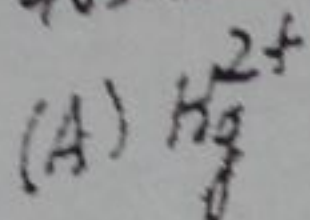 (A) Hg²⁺